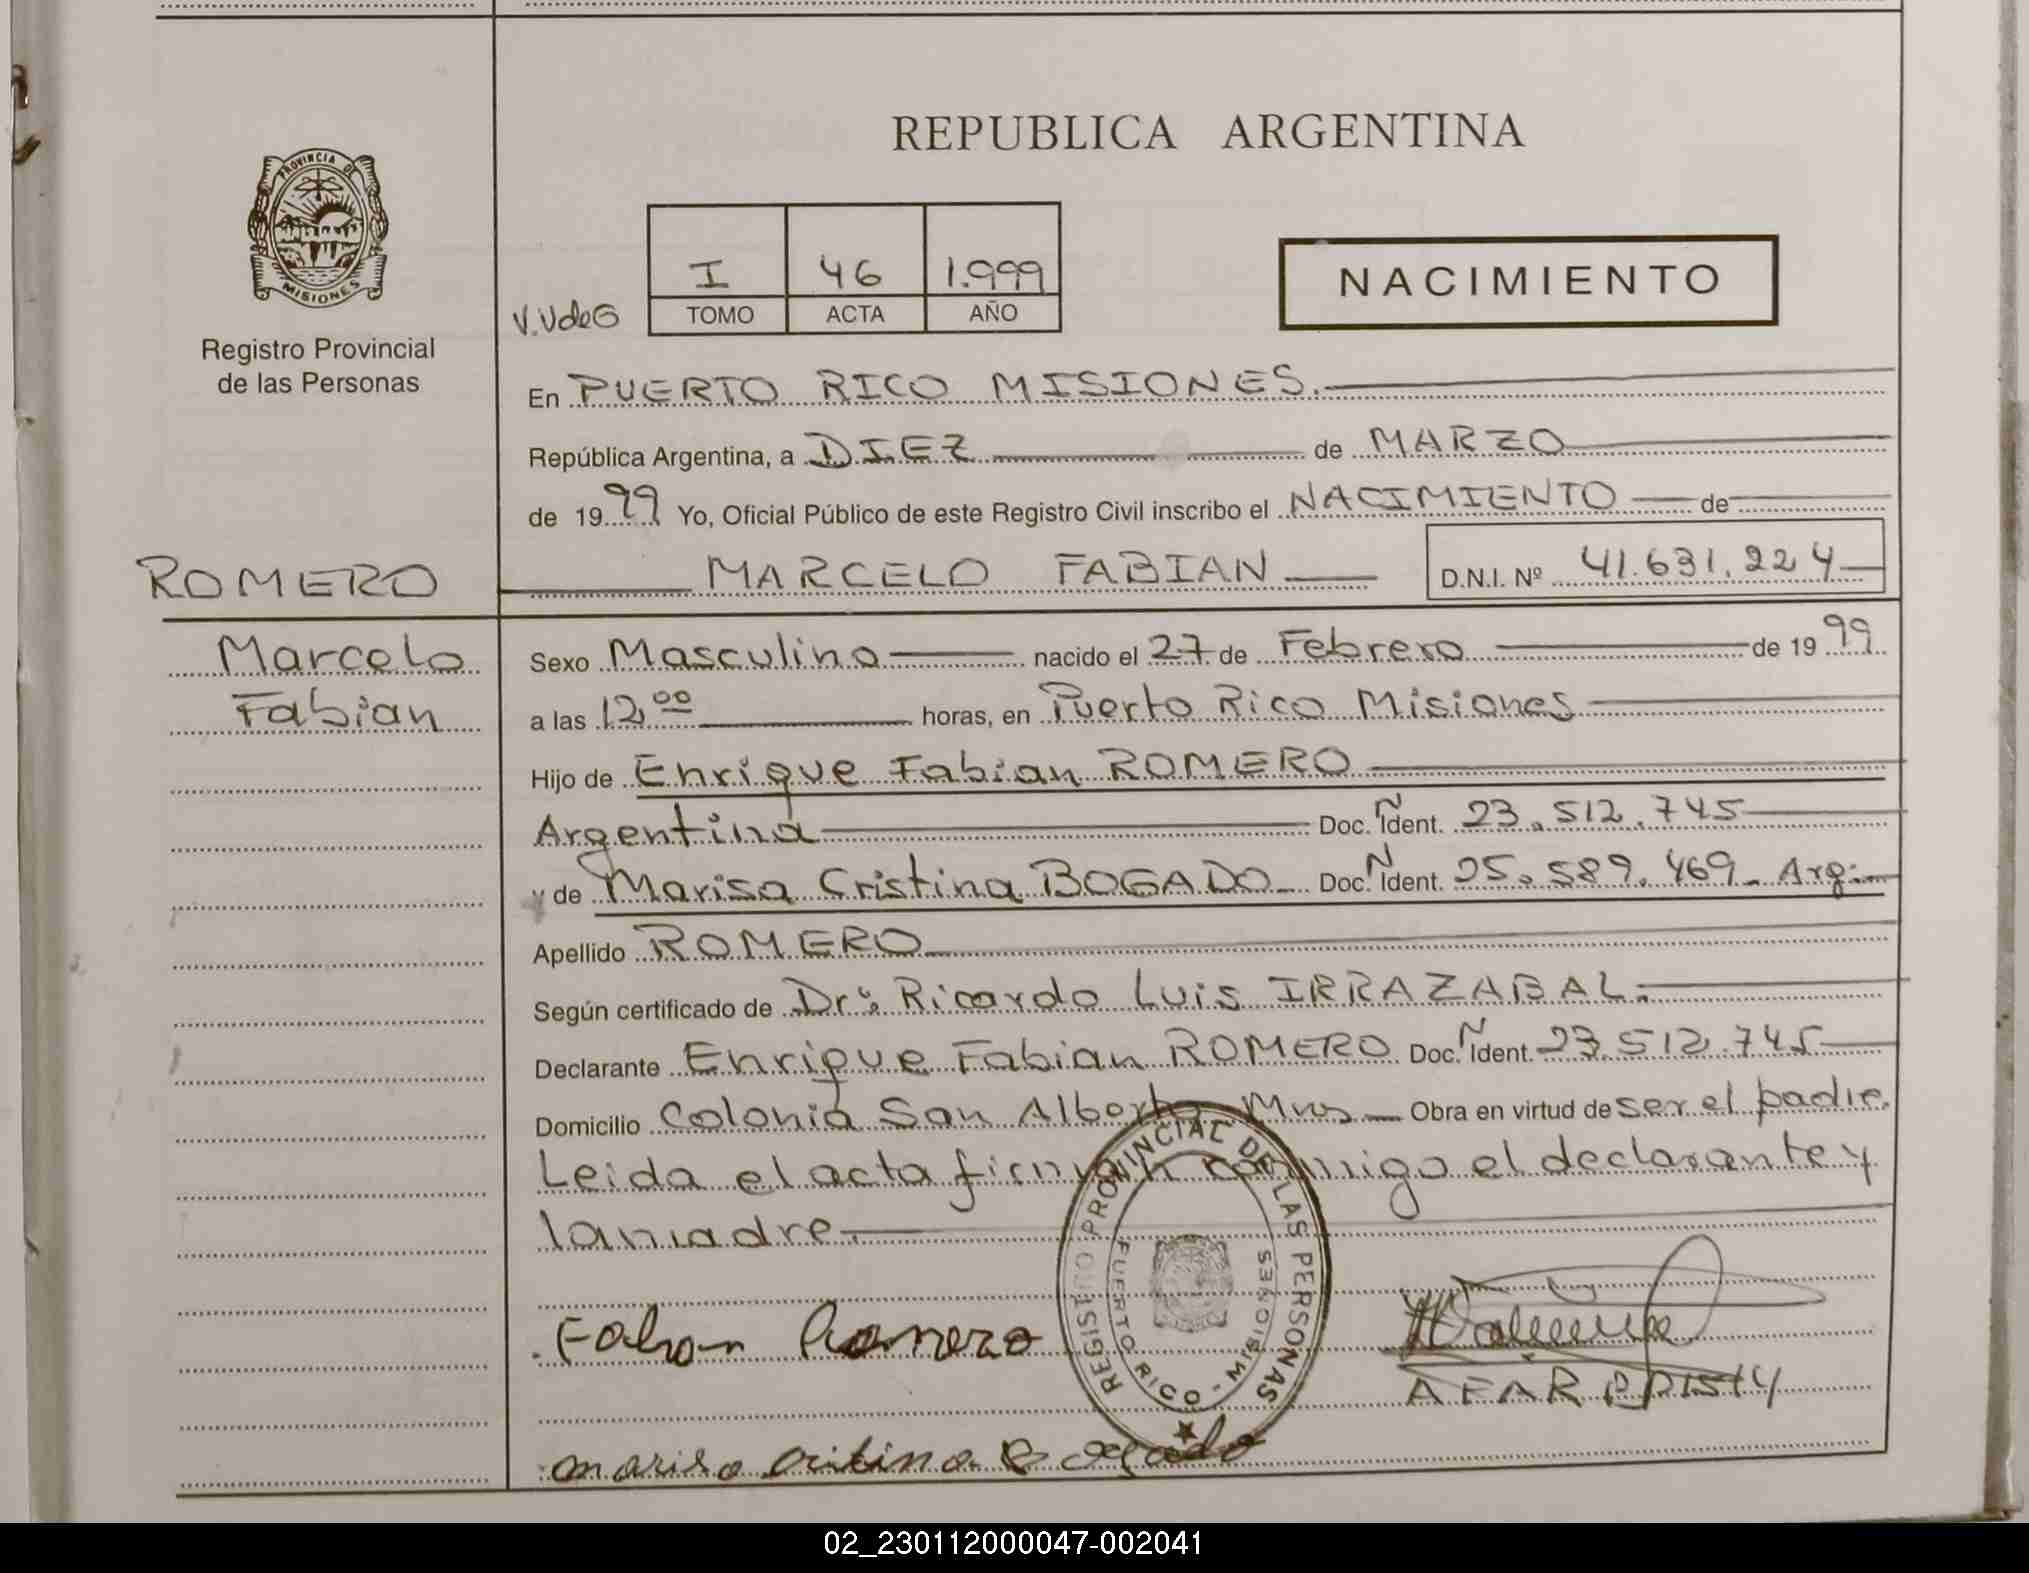 REPUBLICA ARGENTINA
PROVINCIA DE
MISIONES
Registro Provincial
de las Personas
V.VdeG
I 46 1.999
TOMO ACTA AÑO
NACIMIENTO
En PUERTO RICO MISIONES.
República Argentina, a DIEZ de MARZO
de 1999 Yo, Oficial Público de este Registro Civil inscribo el NACIMIENTO de
ROMERO
MARCELO FABIAN D.N.I. Nº 41.631.224
Marcelo
Fabian
Sexo Masculino nacido el 27 de Febrero de 1999
a las 12,00 horas, en Puerto Rico Misiones
Hijo de Enrique Fabian ROMERO
Argentina Doc. Ñ Ident. 23.512.745
y de Marisa Cristina BOGADO Doc. Ñ Ident. 25.589.469 - Arg:
Apellido ROMERO
Según certificado de Dr: Ricardo Luis IRRAZABAL.
Declarante Enrique Fabian ROMERO Doc. Ñ Ident. 23.512.745
Domicilio Colonia San Alberto Mnes Obra en virtud de ser el padre.
Leida el acta firman conmigo el declarante y
la madre
REGISTRO PROVINCIAL DE LAS PERSONAS
PUERTO RICO - MISIONES
Fabian Romero
marisa critina Bogado
02_230112000047-002041